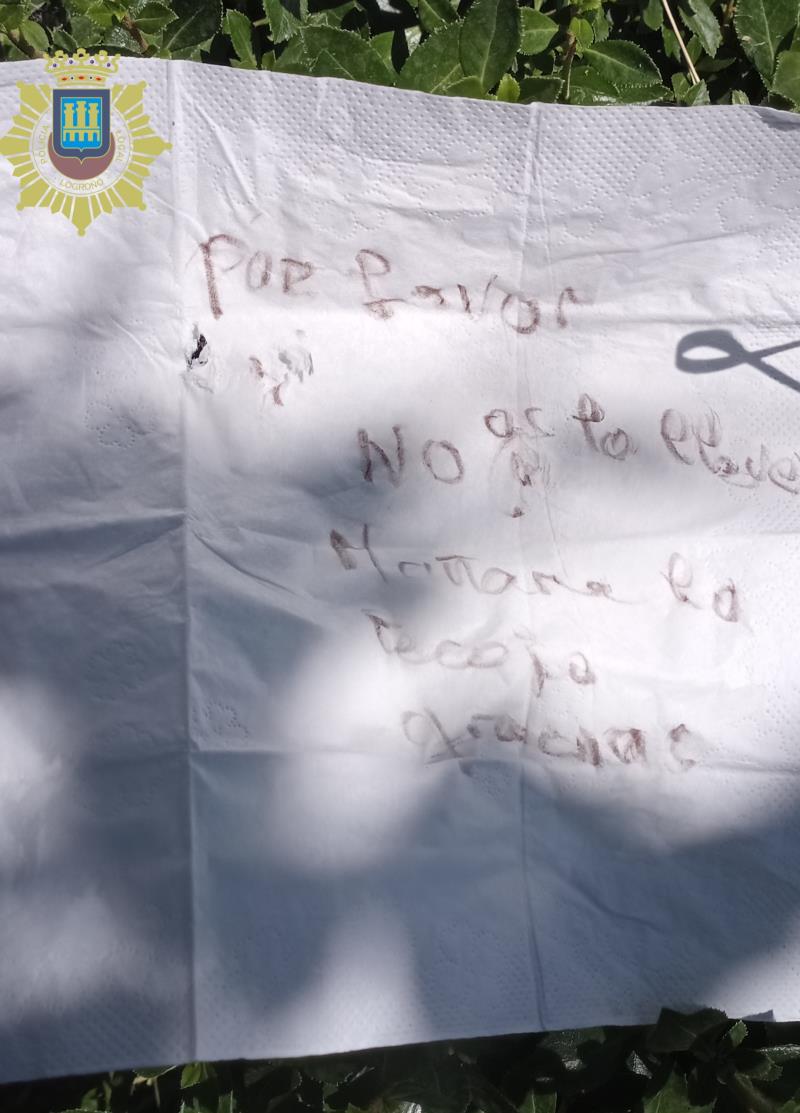 POLICÍA LOCAL
LOGROÑO
Por favor
No os lo lleve
Mañana lo
recojo
gracias